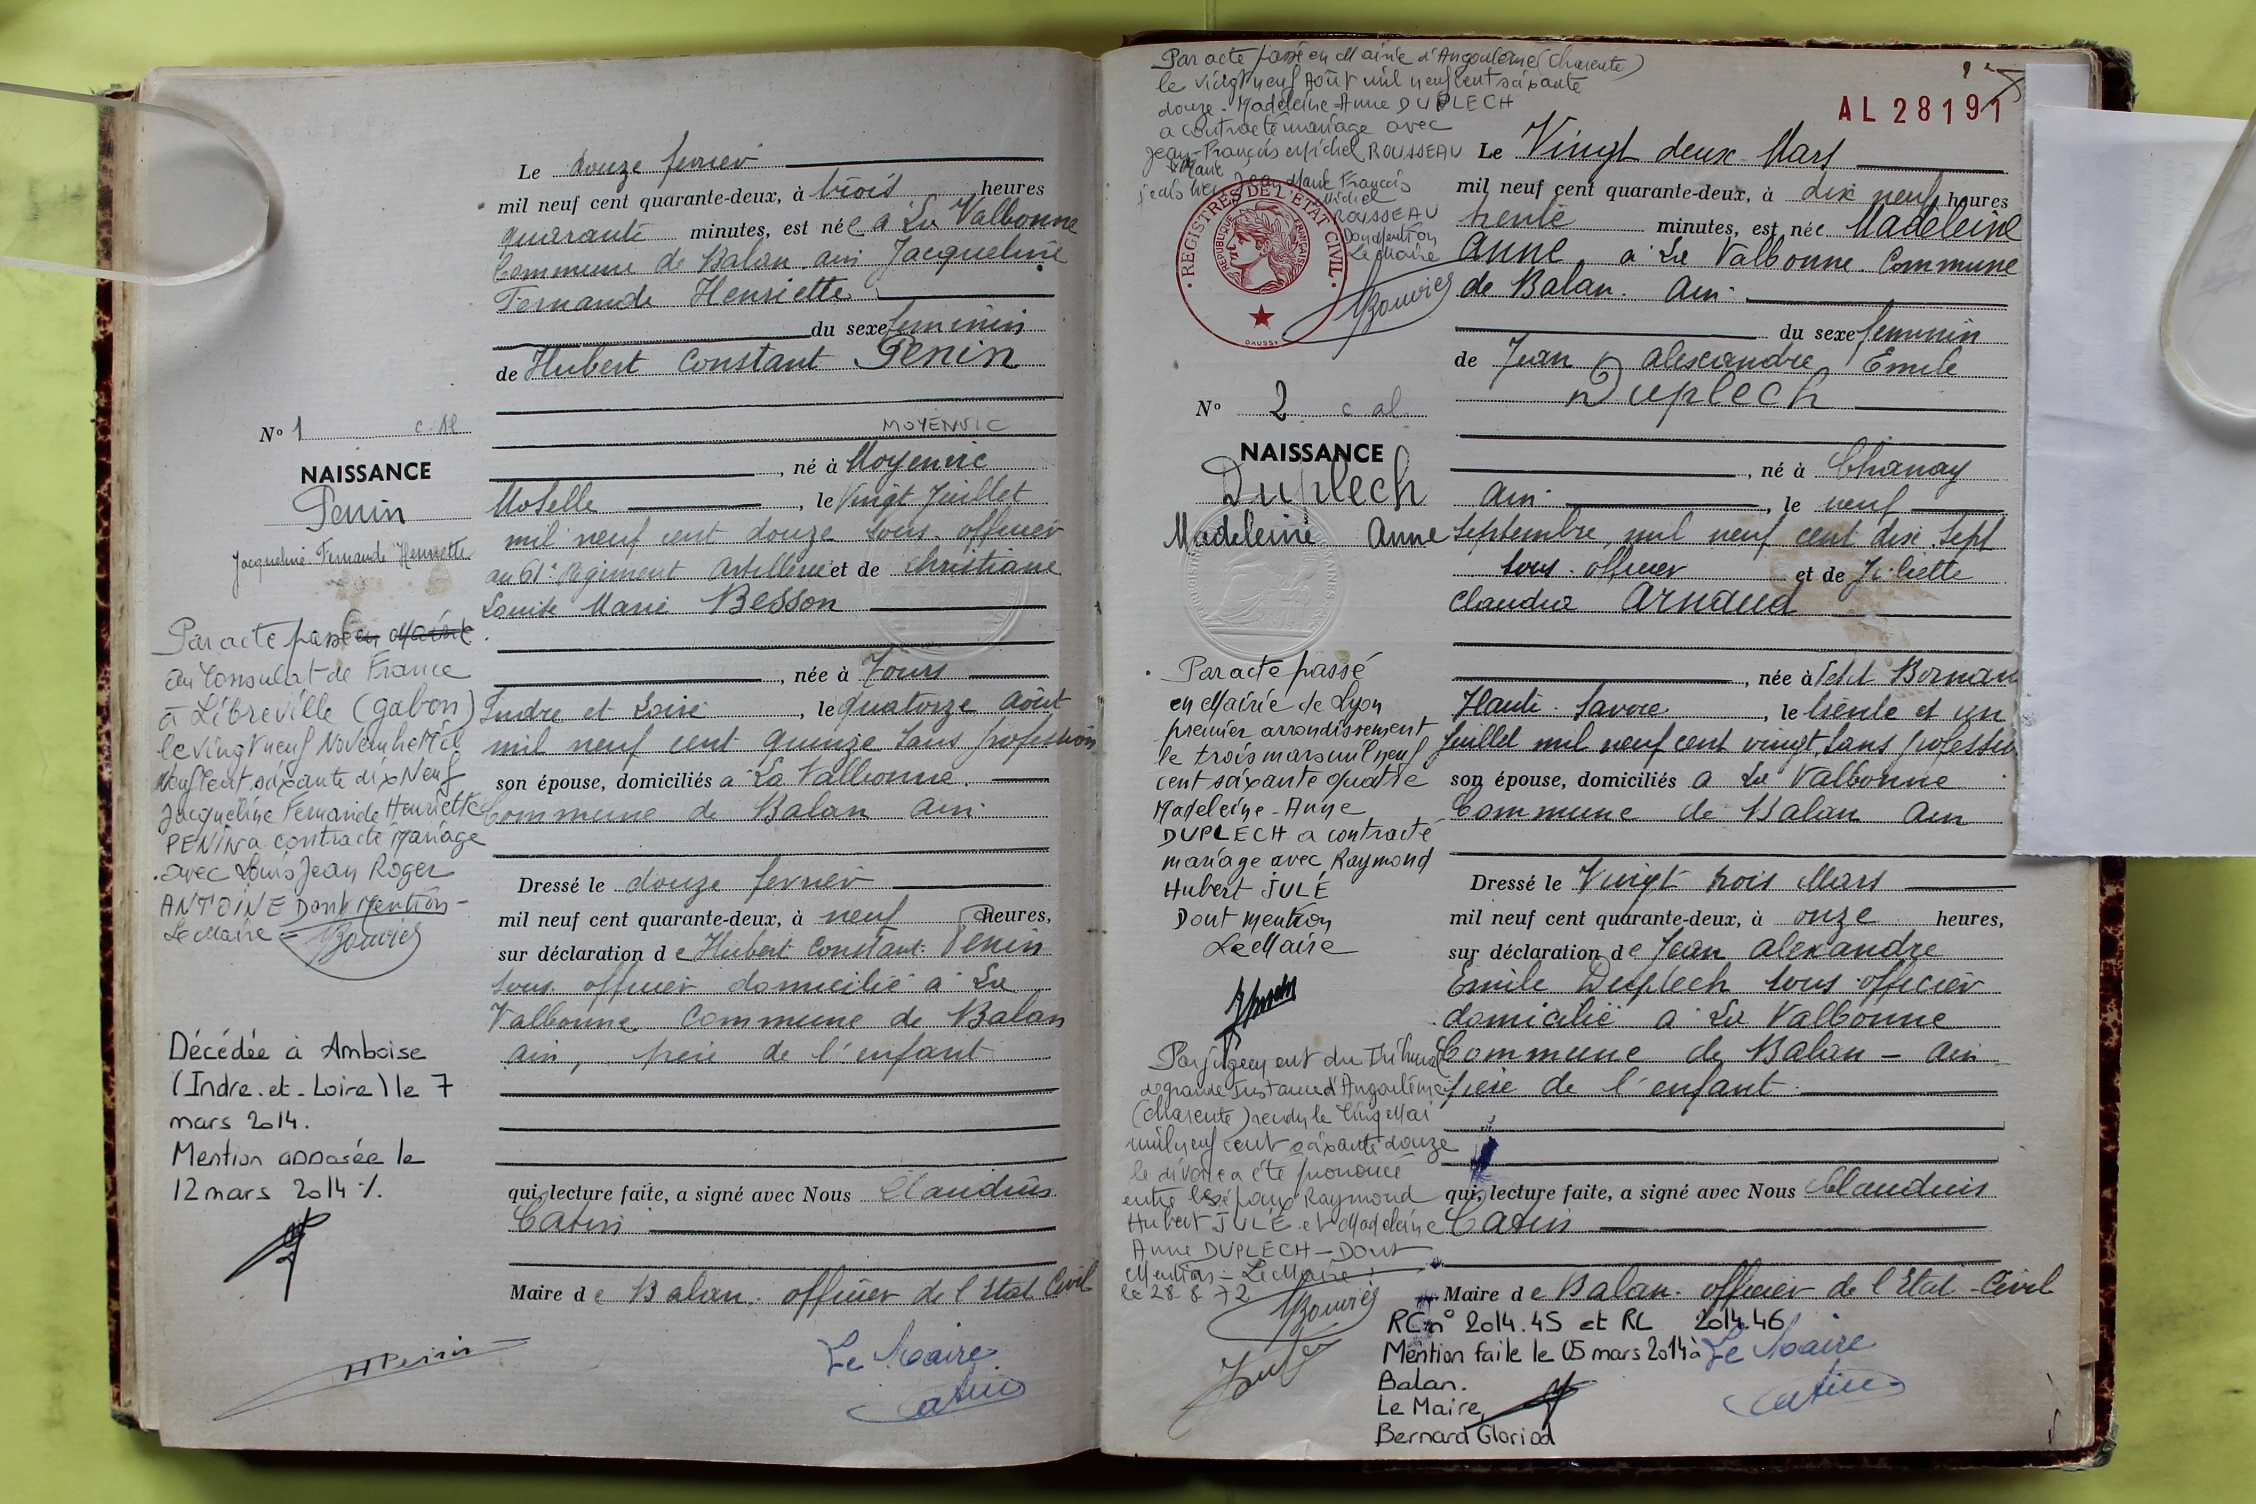 Le douze fevrier
mil neuf cent quarante-deux, à trois heures
quarante minutes, est née à La Valbonne
Commune de Balan ain Jacqueline
Fernande Henriette
du sexe feminin
de Hubert Constant Penin
MOYENVIC
, né à Moyenvic
Moselle , le Vingt Juillet
mil neuf cent douze sous-officier
au 61e Régiment Artillerie et de Christiane
Louise Marie Besson
, née à Tours
Indre et Loire , le quatorze Août
mil neuf cent quinze sans profession
son épouse, domiciliés à La Valbonne.
Commune de Balan ain.
Dressé le douze fevrier
mil neuf cent quarante-deux, à neuf heures,
sur déclaration de Hubert Constant Penin
sous officier domicilié à La
Valbonne Commune de Balan
ain, père de l'enfant
qui, lecture faite, a signé avec Nous Claudius
Catin
Maire de Balan. officier de l'Etat Civil
HPenin
Le Maire
Catin
N° 1
NAISSANCE
Penin
Jacqueline Fernande Henriette
Par acte passé en Mairie
au Consulat de France
à Libreville (gabon)
le vingt neuf Novembre Mil
Neuf cent soixante dix Neuf
Jacqueline Fernande Henriette
PENIN a contracté Mariage
avec Louis Jean Roger
ANTOINE Dont Mention -
Le Maire
Bouvier
Décédée à Amboise
(Indre-et-Loire) le 7
mars 2014.
Mention apposée le
12 mars 2014 ./.
Par acte passé en Mairie d'Angoulême (Charente)
le vingt neuf Août mil neuf cent soixante
douze. Madeleine-Anne DUPLECH
a contracté mariage avec
Jean-François Michel ROUSSEAU
Jean Marie François
Michel
ROUSSEAU
Dont Mention
Le Maire
Bouvier
REGISTRES DE L'ETAT CIVIL
REPUBLIQUE FRANÇAISE
AL 28191
Le Vingt deux Mars
mil neuf cent quarante-deux, à dix neuf heures
trente minutes, est née Madeleine
Anne à La Valbonne. Commune
de Balan. Ain.
du sexe feminin
de Jean Alexandre Emile
Duplech
, né à Chanay
Ain. , le neuf
Septembre, mil neuf cent dix sept
sous-officier et de Juliette
Claudia Arnaud
, née à Petit Bornan
Haute-Savoie , le trente et un
Juillet mil neuf cent vingt sans profession
son épouse, domiciliés à La Valbonne
Commune de Balan Ain
Dressé le Vingt trois Mars
mil neuf cent quarante-deux, à onze heures,
sur déclaration de Jean Alexandre
Emile Duplech sous-officier
domicilié à La Valbonne
Commune de Balan - Ain
père de l'enfant
qui, lecture faite, a signé avec Nous Claudius
Catin
Maire de Balan. officier de l'Etat-Civil
Le Maire
Catin
N° 2
NAISSANCE
Duplech
Madeleine Anne
Par acte passé
en Mairie de Lyon
premier arrondissement
le trois mars mil neuf
cent soixante quatre
Madeleine-Anne
DUPLECH a contracté
mariage avec Raymond
Hubert JULÉ
Dont mention
Le Maire
Par jugement du Tribunal
de grande Instance d'Angoulême
(Charente) rendu le Cinq Mai
mil neuf cent soixante douze
le divorce a été prononcé
entre les époux Raymond
Hubert JULÉ et Madeleine
Anne DUPLECH - Dont
Mention - Le Maire
le 28 8 72
Bouvier
RC n° 2014.45 et RC 2014.46
Mention faite le 05 mars 2014 à
Balan.
Le Maire,
Bernard Gloriod